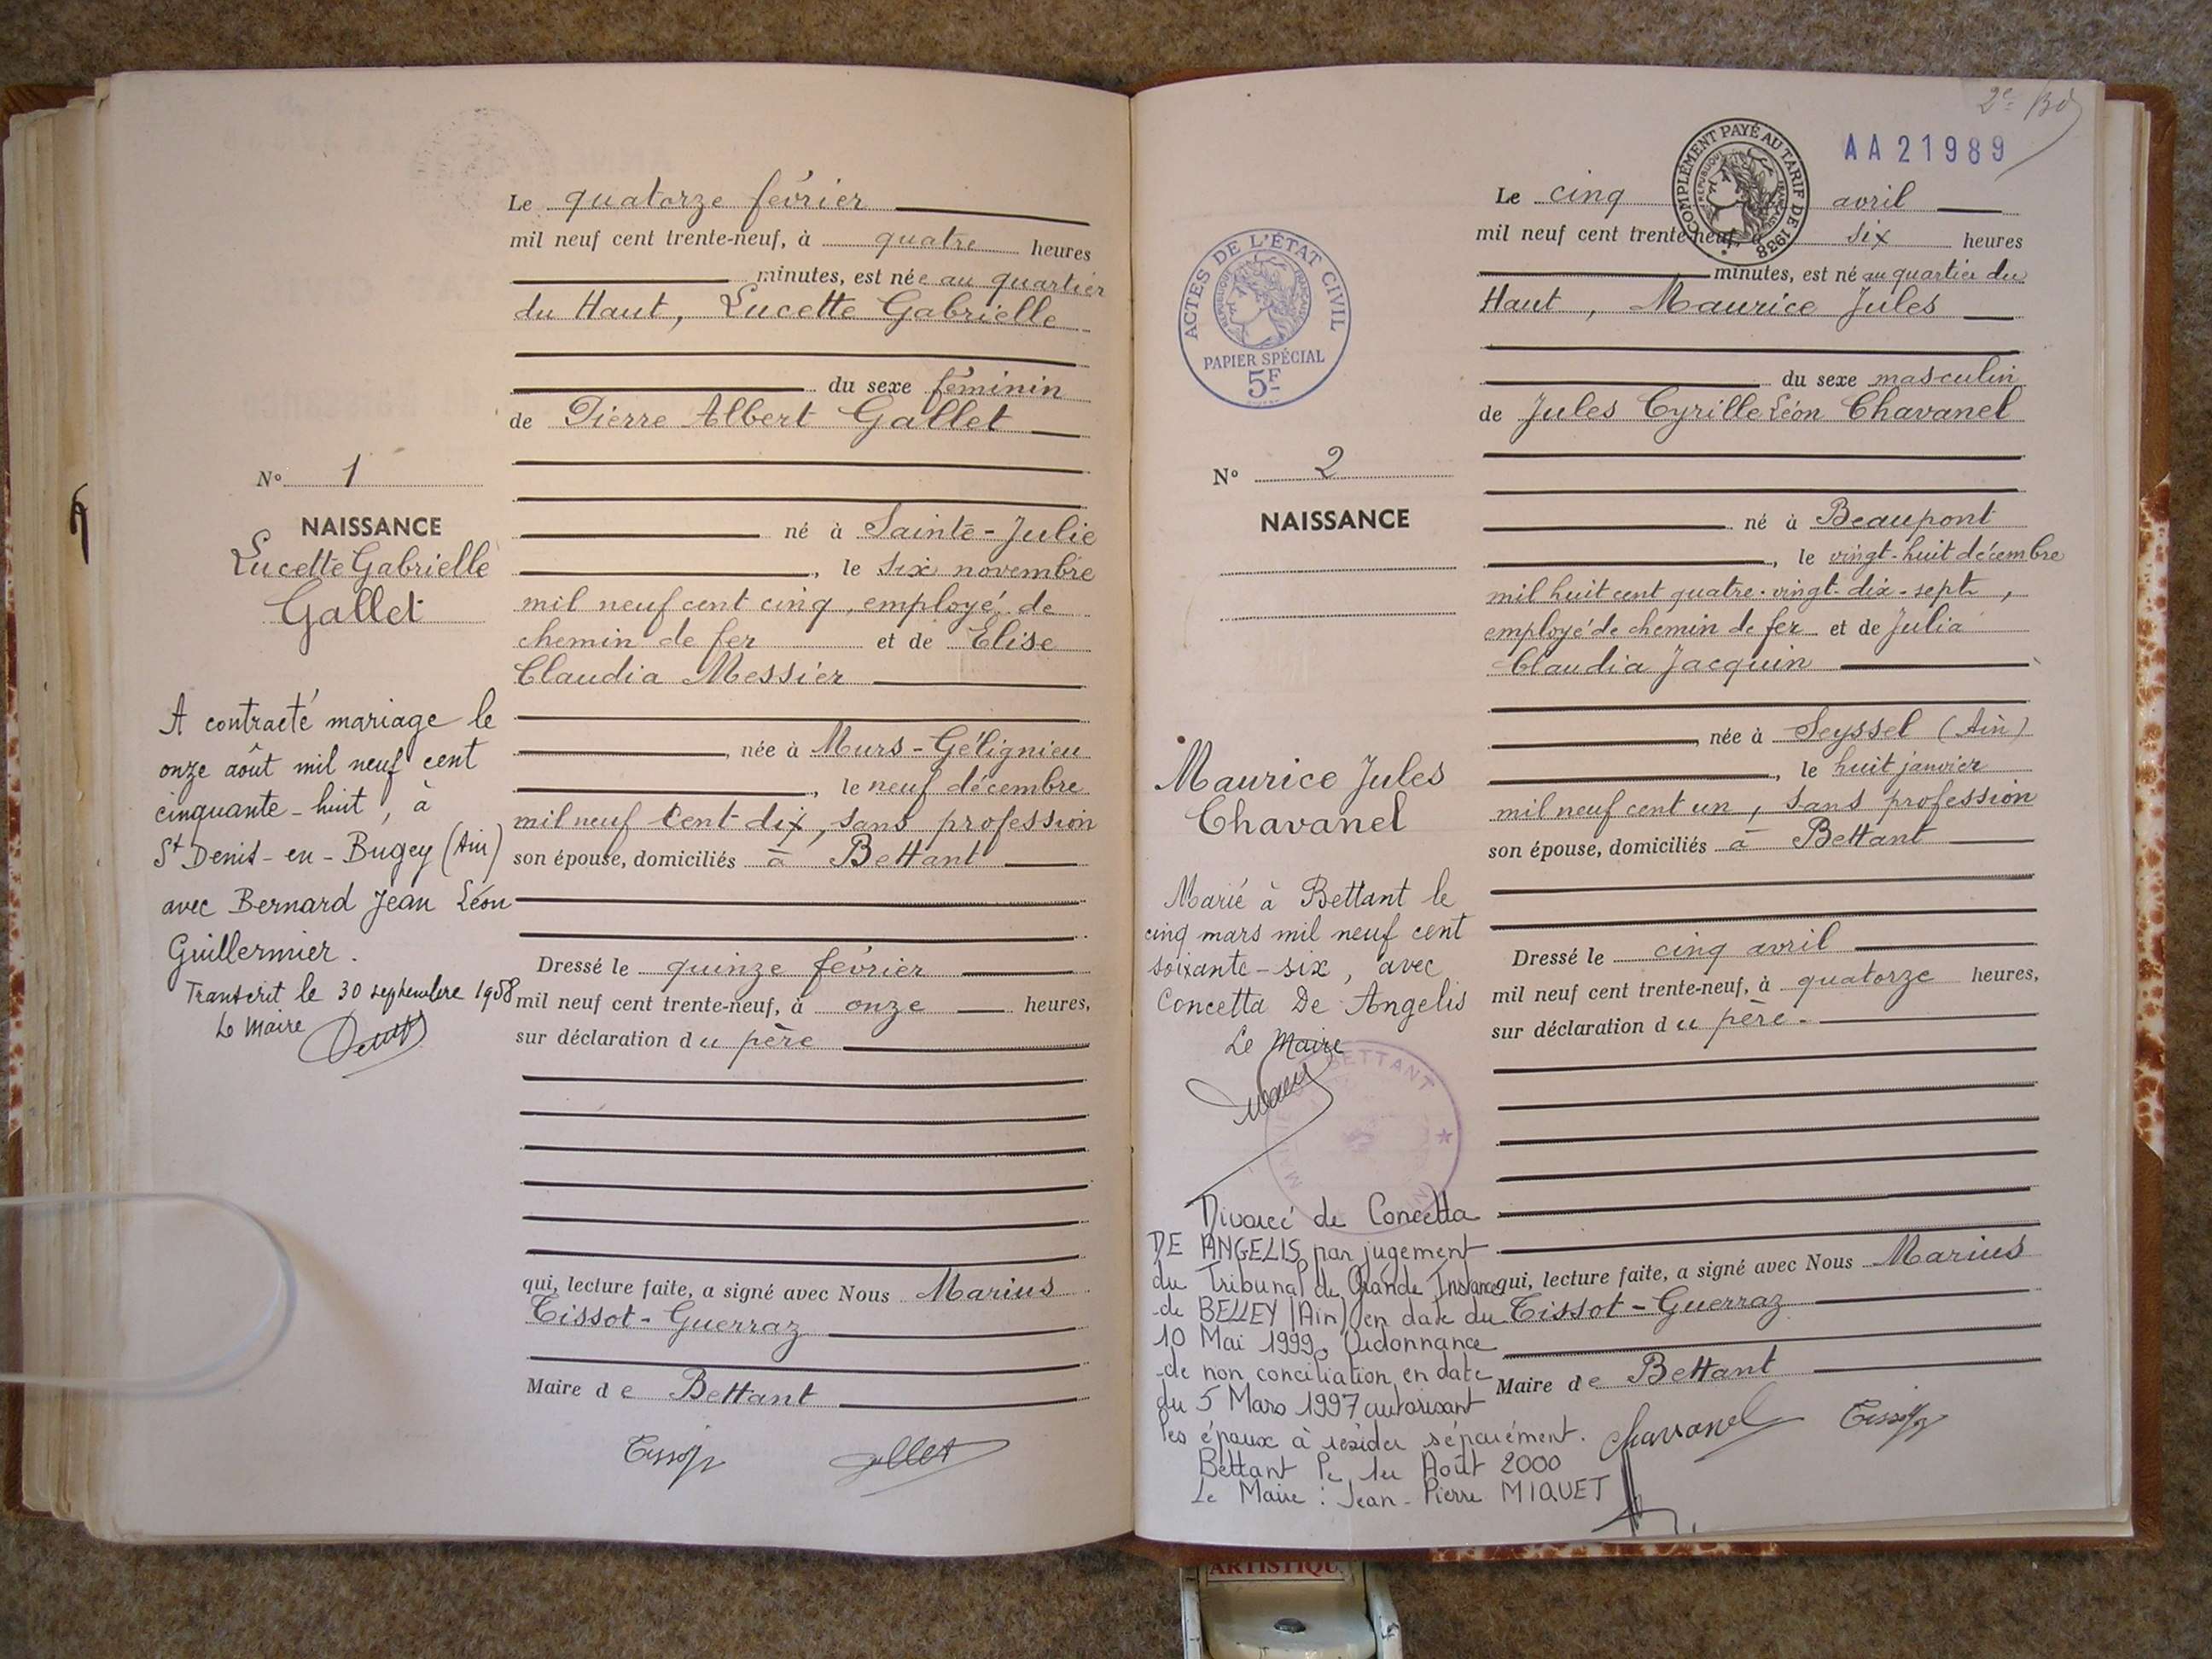 Le quatorze février
mil neuf cent trente-neuf, à quatre heures
minutes, est née au quartier
du Haut, Lucette Gabrielle
du sexe féminin
de Pierre Albert Gallet
né à Sainte-Julie
, le six novembre
mil neuf cent cinq, employé de
chemin de fer et de Elise
Claudia Messier
, née à Murs-Gélignieu
, le neuf décembre
mil neuf cent dix, sans profession
son épouse, domiciliés à Bettant
Dressé le quinze février
mil neuf cent trente-neuf, à onze heures,
sur déclaration du père
qui, lecture faite, a signé avec Nous Marius
Tissot-Guerraz
Maire de Bettant
Gallet
N° 1
NAISSANCE
Lucette Gabrielle
Gallet
A contracté mariage le
onze août mil neuf cent
cinquante-huit, à
St Denis-en-Bugey (Ain)
avec Bernard Jean Léon
Guillermier.
Transcrit le 30 septembre 1958
Le Maire
2e
AA21989
COMPLÉMENT PAYÉ AU TARIF DE 1938
RÉPUBLIQUE FRANÇAISE
Le cinq avril
mil neuf cent trente-neuf, à six heures
minutes, est né au quartier du
Haut, Maurice Jules
du sexe masculin
de Jules Cyrille Léon Chavanel
né à Beaupont
, le vingt-huit décembre
mil huit cent quatre-vingt-dix-sept,
employé de chemin de fer et de Julia
Claudia Jacquin
, née à Seyssel (Ain)
, le huit janvier
mil neuf cent un, sans profession
son épouse, domiciliés à Bettant
Dressé le cinq avril
mil neuf cent trente-neuf, à quatorze heures,
sur déclaration du père.
qui, lecture faite, a signé avec Nous Marius
Tissot-Guerraz
Maire de Bettant
Chavanel
ACTES DE L'ÉTAT CIVIL
RÉPUBLIQUE FRANÇAISE
PAPIER SPÉCIAL
5F
N° 2
NAISSANCE
Maurice Jules
Chavanel
Marié à Bettant le
cinq mars mil neuf cent
soixante-six, avec
Concetta De Angelis
Le Maire
BETTANT
Divorcé de Concetta
DE ANGELIS par jugement
du Tribunal de Grande Instance
de BELLEY (Ain) en date du
10 Mai 1999. Ordonnance
de non conciliation en date
du 5 Mars 1997 autorisant
les époux à résider séparément.
Bettant le 1er Août 2000
Le Maire : Jean-Pierre MIQUET
ARTISTIQU